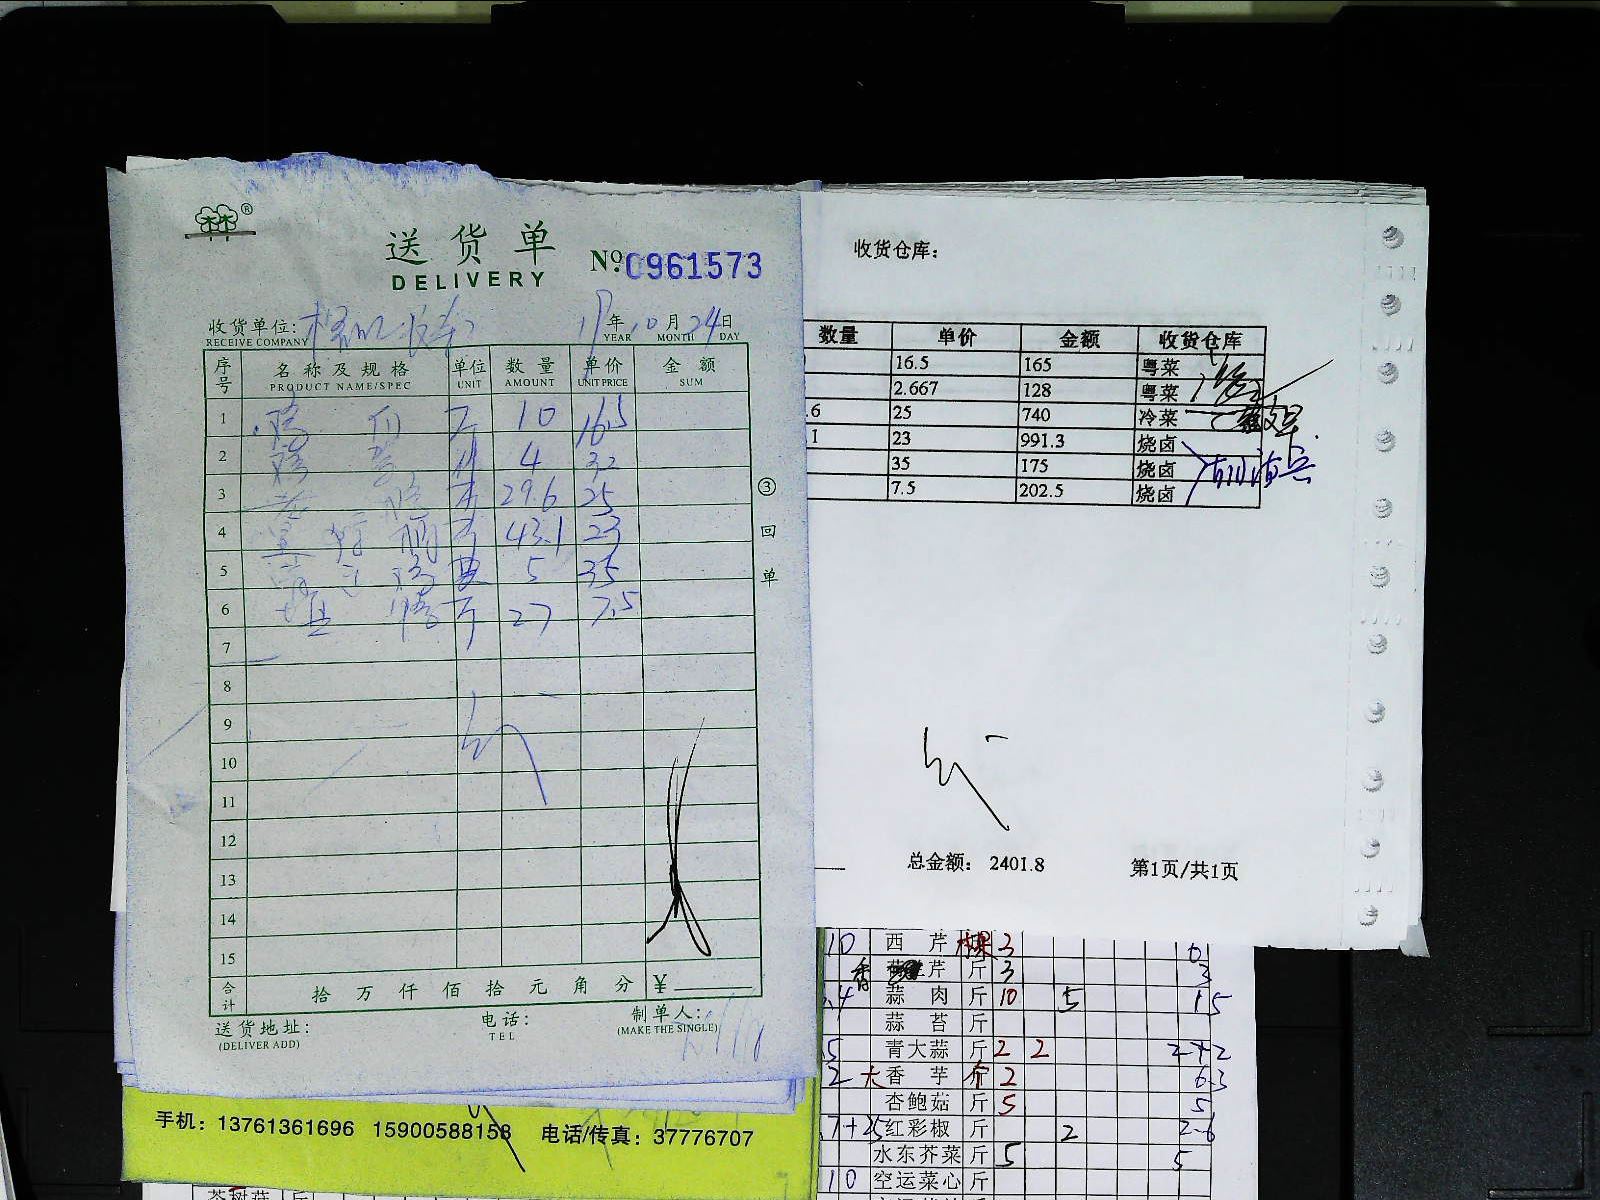 送货单
DELIVERY
№ 0961573
收货单位:
RECEIVE COMPANY
年 10 月 24 日
YEAR MONTH DAY
序号 名称及规格 单位 数量 单价 金额
PRODUCT NAME/SPEC UNIT AMOUNT UNIT PRICE SUM
1 斤 10 16.5
2 4 32
3 斤 29.6 25
4 斤 43.1 23
5 5 35
6 斤 27 7.5
7
8
9
10
11
12
13
14
15
合计 拾 万 仟 佰 拾 元 角 分 ¥
送货地址: 电话: 制单人:
(DELIVER ADD) TEL (MAKE THE SINGLE)
③ 回单
手机: 13761361696 15900588158 电话/传真: 37776707
收货仓库:
数量 单价 金额 收货仓库
16.5 165 粤菜
2.667 128 粤菜
.6 25 740 冷菜
1 23 991.3 烧卤
35 175 烧卤
7.5 202.5 烧卤
总金额: 2401.8 第1页/共1页
10 西芹 棵 3 6
香 芹 斤 3 3
.4 蒜肉 斤 10 5 15
蒜苔 斤
.5 青大蒜 斤 2 2 2+2
2 大香芋 个 2 6.3
杏鲍菇 斤 5 5
.7+25 红彩椒 斤 2 2.6
水东芥菜 斤 5 5
10 空运菜心 斤